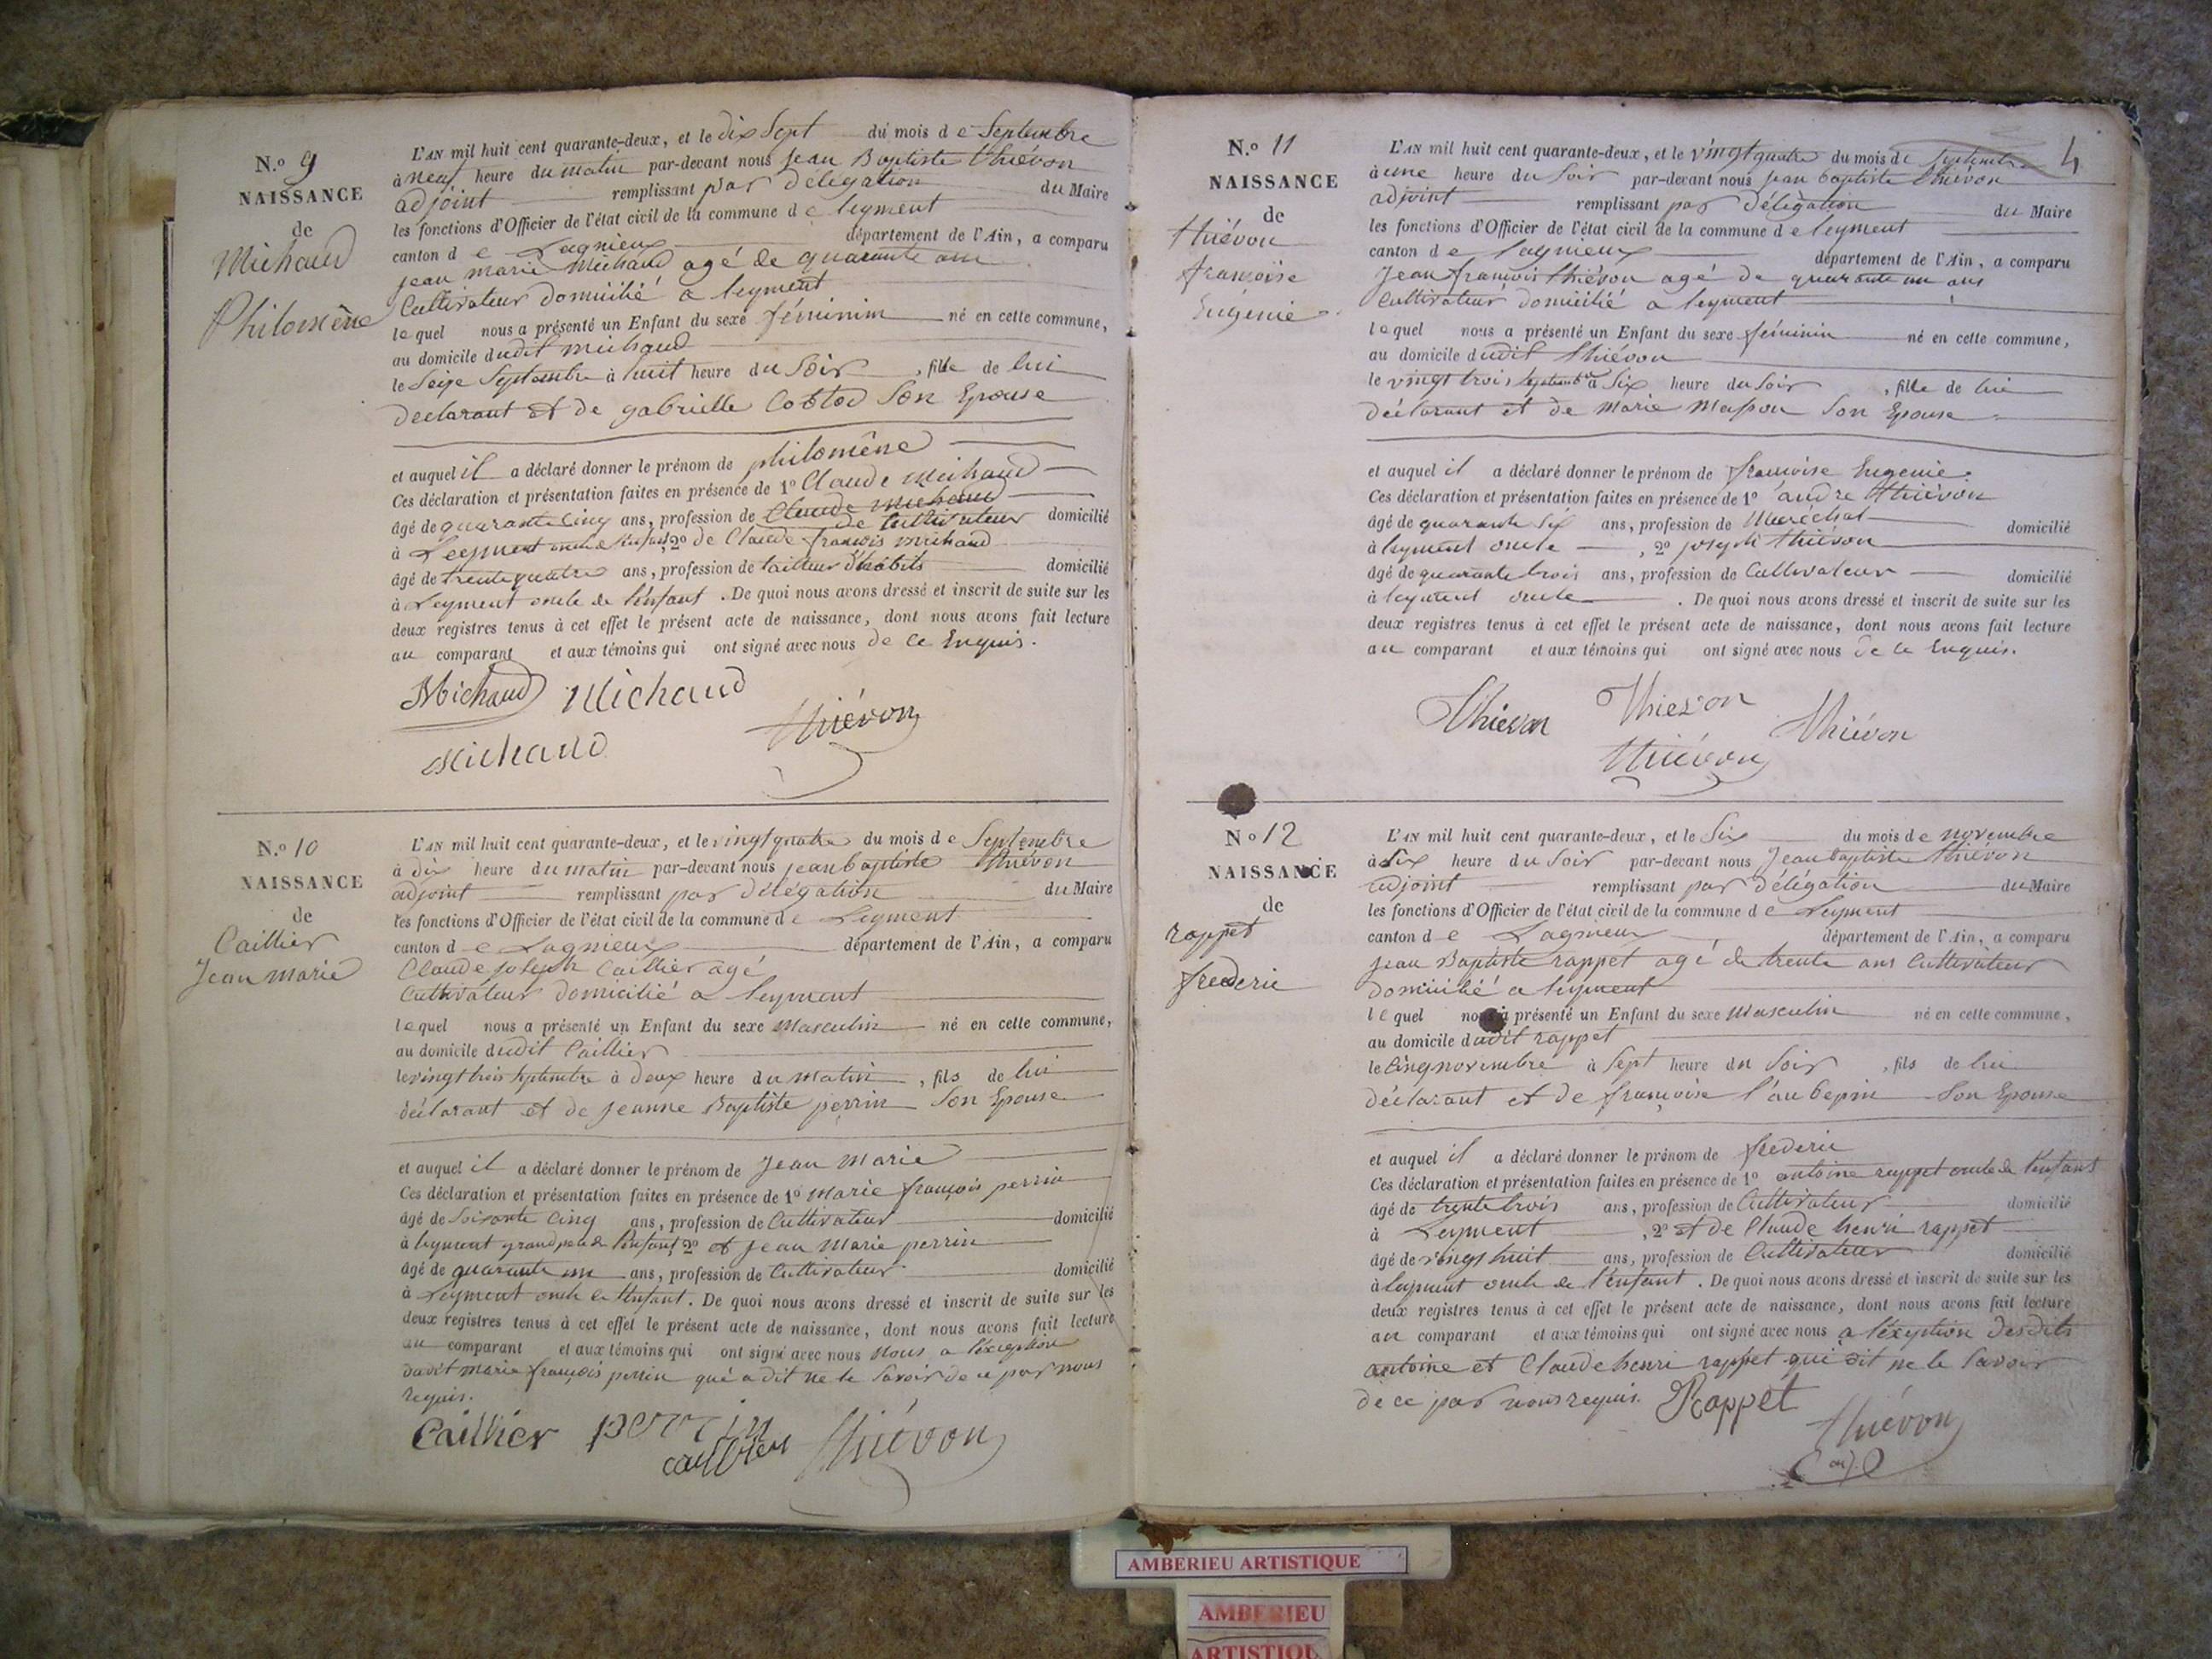 N.o 9
NAISSANCE
de
Michaud
Philomène
L'AN mil huit cent quarante-deux, et le dix Sept du mois de Septembre
à neuf heure du matin par-devant nous Jean Baptiste thiévon
adjoint remplissant par délégation du Maire
les fonctions d'Officier de l'état civil de la commune de leyment
canton de Lagnieux département de l'Ain, a comparu
jean marie Michaud agé de quarante ans
Cultivateur domicilié a leyment
lequel nous a présenté un Enfant du sexe féminim né en cette commune,
au domicile dudit michaud
le Seize Septembre à huit heure du Soir, fille de lui
déclarant et de gabrielle Son Epouse
et auquel il a déclaré donner le prénom de philomêne
Ces déclaration et présentation faites en présence de 1o Claude Michaud
âgé de quarante Cinq ans, profession de Claude Michaud de Cultivateur domicilié
à Leyment oncle 2o de Claude françois michaud
âgé de trente quatre ans, profession de tailleur d'habits domicilié
à Leyment oncle de l'enfant. De quoi nous avons dressé et inscrit de suite sur les
deux registres tenus à cet effet le présent acte de naissance, dont nous avons fait lecture
au comparant et aux témoins qui ont signé avec nous de ce Enquis.
Michaud Michaud
Thiévon
Michaud
N.o 10
NAISSANCE
de
Caillier
Jean marie
L'AN mil huit cent quarante-deux, et le vingt quatre du mois de Septembre
à dix heure du matin par-devant nous jean baptiste thiévon
adjoint remplissant par délégation du Maire
les fonctions d'Officier de l'état civil de la commune de Leyment
canton de Lagnieux département de l'Ain, a comparu
Claude joseph Caillier agé
Cultivateur domicilié a leyment
lequel nous a présenté un Enfant du sexe Masculin né en cette commune,
au domicile dudit Caillier
le vingt trois Septembre à deux heure du matin, fils de lui
déclarant et de jeanne Baptiste perrin Son Epouse
et auquel il a déclaré donner le prénom de Jean Marie
Ces déclaration et présentation faites en présence de 1o Marie françois perrin
âgé de Soixante Cinq ans, profession de Cultivateur domicilié
à leyment grand père de l'enfant 2o et Jean Marie perrin
âgé de quarante un ans, profession de Cultivateur domicilié
à Leyment oncle de l'enfant. De quoi nous avons dressé et inscrit de suite sur les
deux registres tenus à cet effet le présent acte de naissance, dont nous avons fait lecture
au comparant et aux témoins qui ont signé avec nous a l'exception
dudit marie françois perrin qui a dit ne le Savoir de ce par nous
requis.
Caillier perrin
Thiévon
N.o 11
NAISSANCE
de
thiévon
françoise
Eugénie
4
L'AN mil huit cent quarante-deux, et le vingt quatre du mois de Septembre
à une heure du Soir par-devant nous jean baptiste thiévon
adjoint remplissant par délégation du Maire
les fonctions d'Officier de l'état civil de la commune de leyment
canton de Lagnieux département de l'Ain, a comparu
Jean françois thiévon agé de quarante un ans
Cultivateur domicilié a leyment
lequel nous a présenté un Enfant du sexe féminin né en cette commune,
au domicile dudit thiévon
le vingt trois Septembre à Six heure du Soir, fille de lui
déclarant et de Marie Masson Son Epouse
et auquel il a déclaré donner le prénom de françoise Eugenie
Ces déclaration et présentation faites en présence de 1o andre thiévon
âgé de quarante Six ans, profession de Maréchal domicilié
à leyment oncle, 2o joseph thiévon
âgé de quarante trois ans, profession de Cultivateur domicilié
à leyment oncle. De quoi nous avons dressé et inscrit de suite sur les
deux registres tenus à cet effet le présent acte de naissance, dont nous avons fait lecture
au comparant et aux témoins qui ont signé avec nous de ce Enquis.
Thiévon Thiévon
Thiévon
Thiévon
No 12
NAISSANCE
de
rappet
frederic
L'AN mil huit cent quarante-deux, et le Six du mois de novembre
à Six heure du Soir par-devant nous Jean baptiste thiévon
adjoint remplissant par délégation du Maire
les fonctions d'Officier de l'état civil de la commune de Leyment
canton de Lagnieux département de l'Ain, a comparu
jean Baptiste rappet agé de trente ans Cultivateur
domicilié a leyment
lequel nous a présenté un Enfant du sexe Masculin né en cette commune,
au domicile dudit rappet
le Cinq novembre à Sept heure du Soir, fils de lui
déclarant et de françoise l'aubepin Son Epouse
et auquel il a déclaré donner le prénom de frederic
Ces déclaration et présentation faites en présence de 1o antoine rappet oncle de l'enfant
âgé de trente trois ans, profession de Cultivateur domicilié
à Leyment, 2o et de Claude henri rappet
âgé de vingt huit ans, profession de Cultivateur domicilié
à leyment oncle de l'enfant. De quoi nous avons dressé et inscrit de suite sur les
deux registres tenus à cet effet le présent acte de naissance, dont nous avons fait lecture
au comparant et aux témoins qui ont signé avec nous a l'exeption desdits
antoine et Claude henri rappet qui dit ne le Savoir
de ce par nous requis. Rappet
Thiévon
adj
AMBERIEU ARTISTIQUE
AMBERIEU
ARTISTIQU